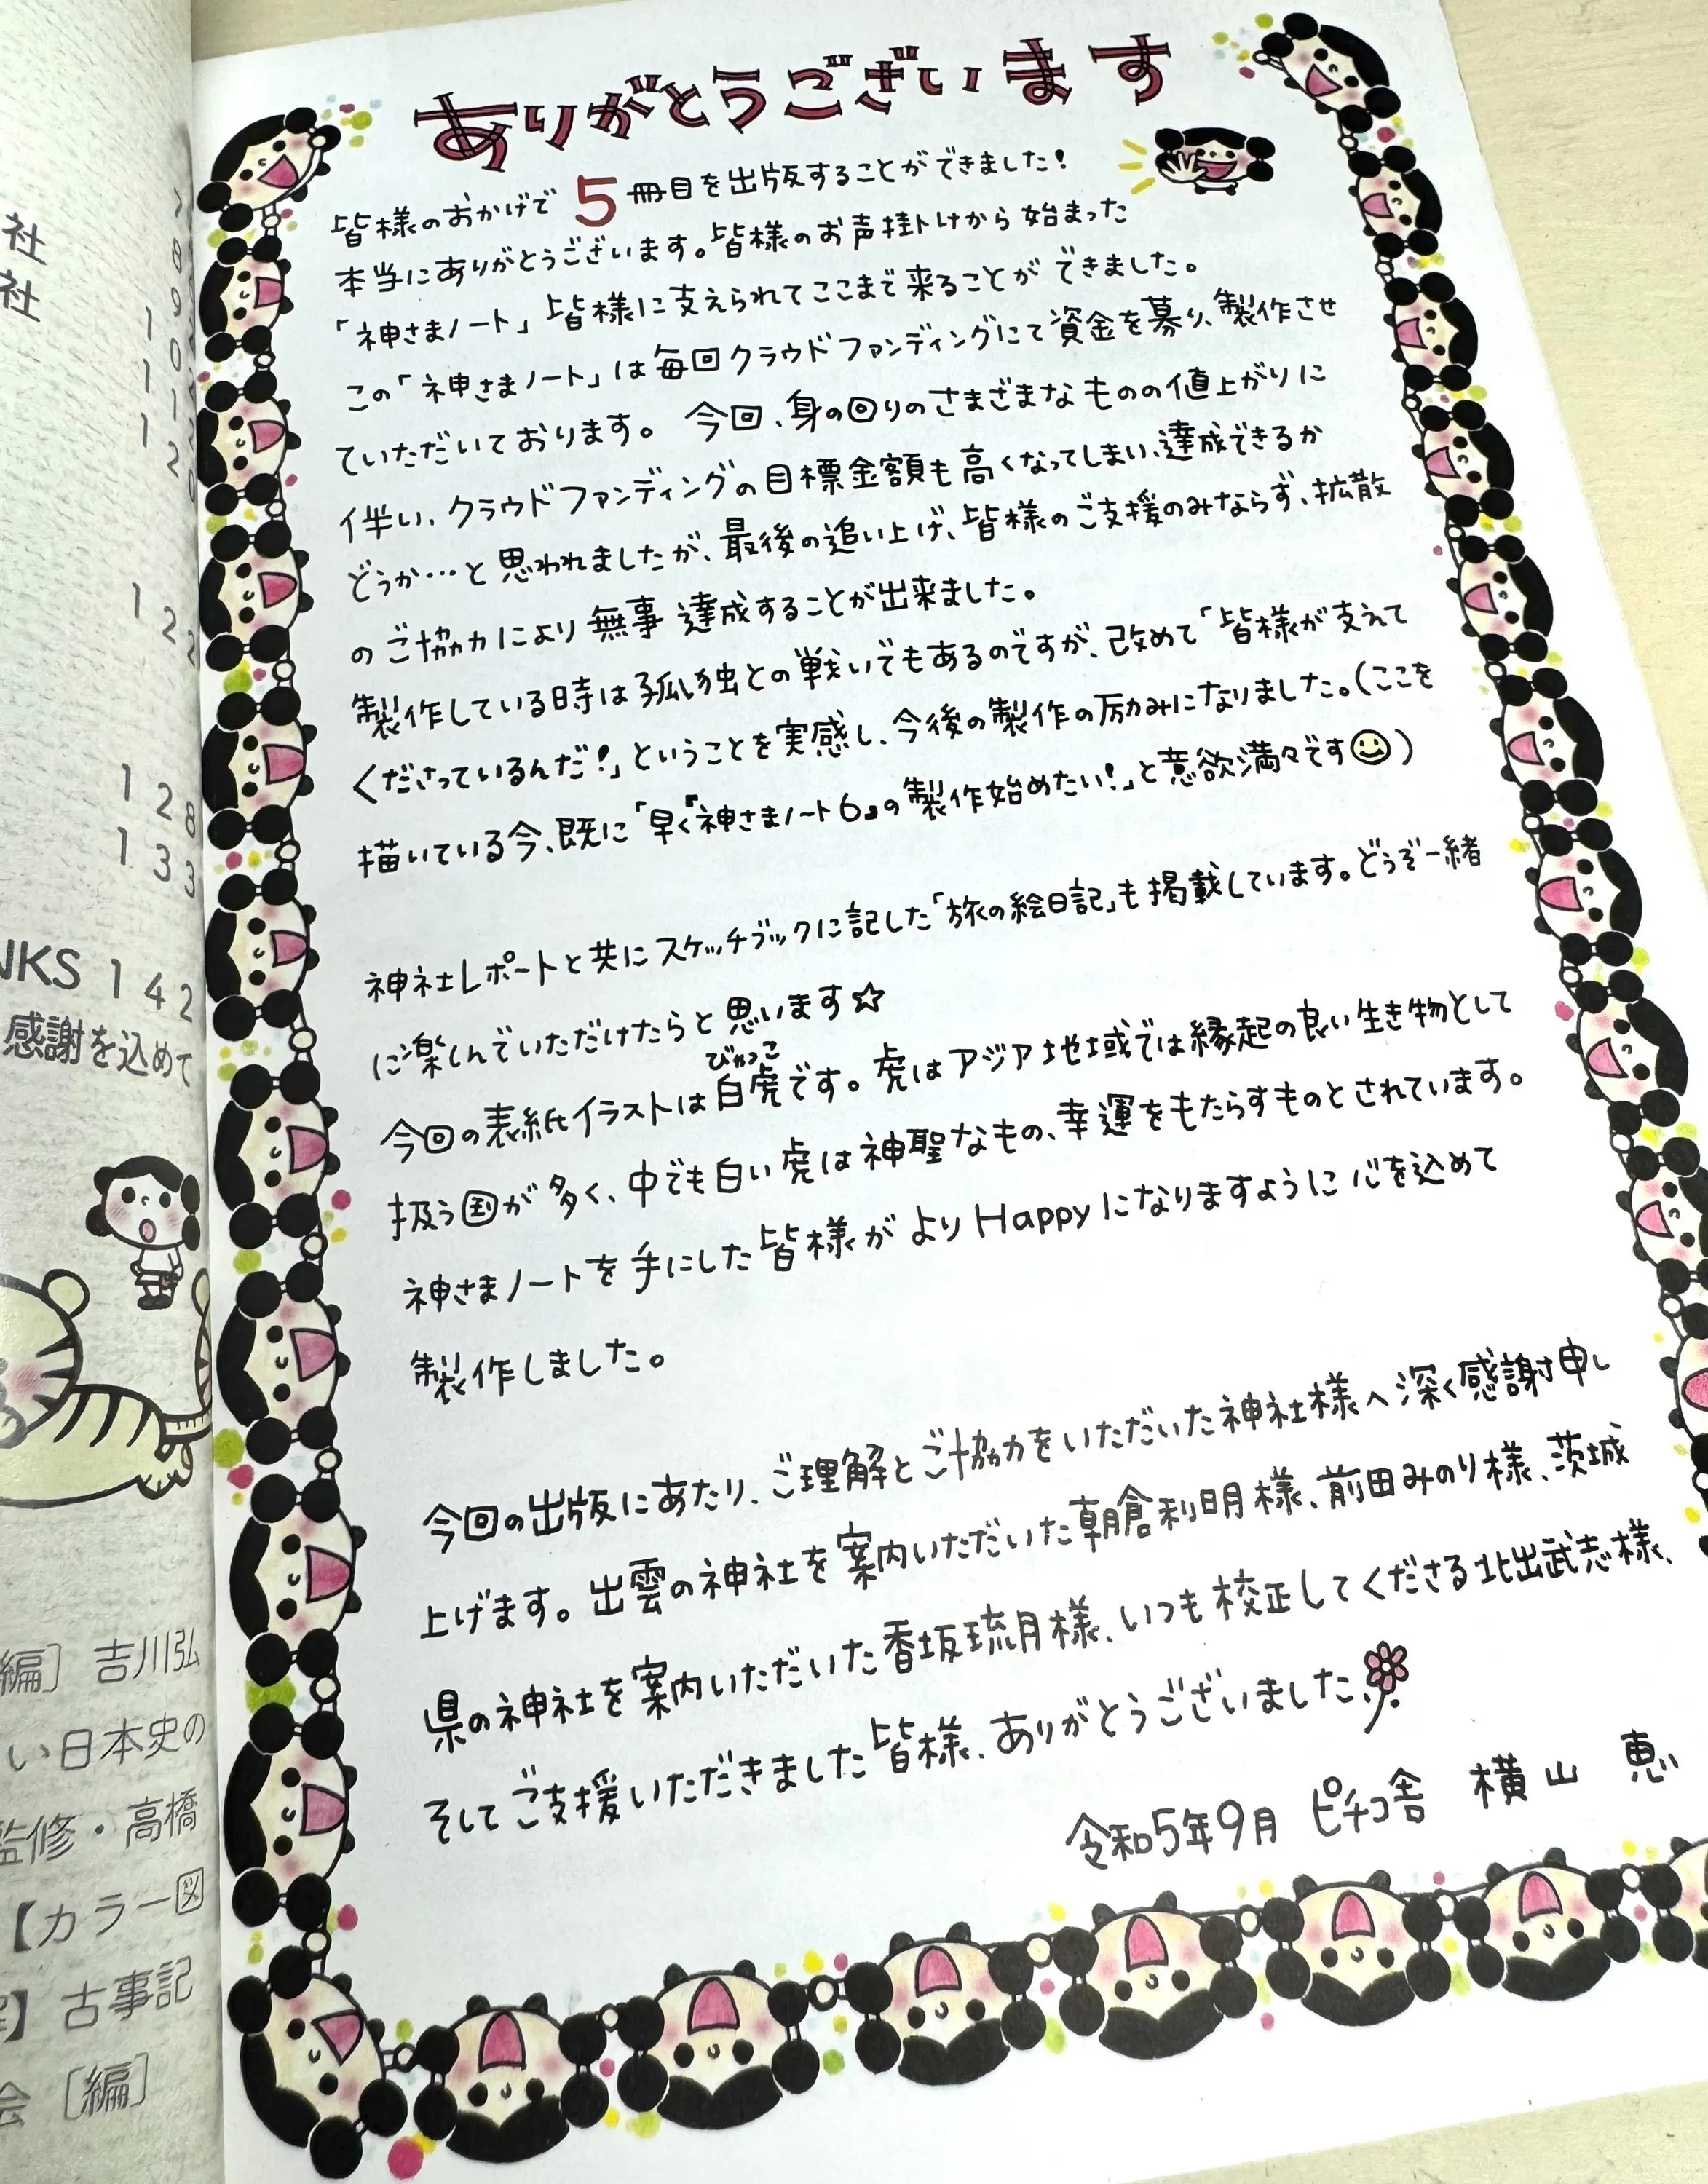 社
社
1 2 2
1 2 8
1 3 3
NKS 1 4 2
感謝を込めて
編〕 吉川弘
い日本史の
監修・高橋
【カラー図
】 古事記
会 〔編〕
ありがとうございます
皆様のおかげで 5 冊目を出版することができました!
本当にありがとうございます。皆様のお声掛けから始まった
「神さまノート」皆様に支えられてここまで来ることができました。
この「神さまノート」は毎回クラウドファンディングにて資金を募り、製作させ
ていただいております。 今回、身の回りのさまざまなものの値上がりに
伴い、クラウドファンディングの目標金額も高くなってしまい、達成できるか
どうか…と思われましたが、最後の追い上げ、皆様のご支援のみならず、拡散
のご協力により無事達成することが出来ました。
製作している時は孤独との戦いでもあるのですが、改めて「皆様が支えて
くださっているんだ!」ということを実感し、今後の製作の励みになりました。(ここを
描いている今、既に「早く『神さまノート6』の製作始めたい!」と意欲満々です☺)
神社レポートと共にスケッチブックに記した「旅の絵日記」も掲載しています。どうぞ一緒
に楽しんでいただけたらと思います☆
びゃっこ
今回の表紙イラストは白虎です。虎はアジア地域では縁起の良い生き物として
扱う国が多く、中でも白い虎は神聖なもの、幸運をもたらすものとされています。
神さまノートを手にした皆様がよりHappyになりますように心を込めて
製作しました。
今回の出版にあたり、ご理解とご協力をいただいた神社様へ深く感謝申し
上げます。出雲の神社を案内いただいた朝倉利明様、前田みのり様、茨城
県の神社を案内いただいた香坂琉月様、いつも校正してくださる北出武志様、
そしてご支援いただきました皆様、ありがとうございました
令和5年9月 ピチコ舎 横山 恵